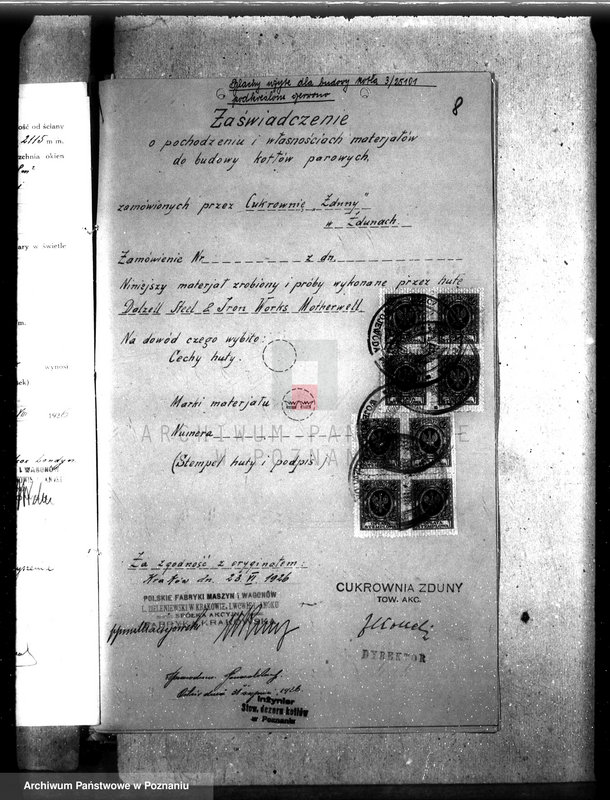 Blachy użyte dla budowy kotła 3/25101
podkreślone czerwono
8
Zaświadczenie
o pochodzeniu i własnościach materjałów
do budowy kotłów parowych,
zamówionych przez Cukrownię „Zduny”
w Zdunach
Zamówienie Nr z dn.
Niniejszy materjał zrobiony i próby wykonane przez hutę
Dalzell Steel & Iron Works Motherwell
Na dowód czego wybito:
Cechy huty.
Marki materjału
Numera
(Stempel huty i podpis)
ARCHIWUM PAŃSTWOWE
W POZNANIU
Za zgodność z oryginałem:
Kraków dn. 23.VI.1926
POLSKIE FABRYKI MASZYN i WAGONÓW
L. ZIELENIEWSKI W KRAKOWIE, LWOWIE i SANOKU
SPÓŁKA AKCYJNA
FABRYKA KRAKOWSKA
CUKROWNIA ZDUNY
TOW. AKC.
DYREKTOR
1926
Inżynier
Stow. dozoru kotłów
w Poznaniu
ość od ściany
2115 m m.
zchnia okien
ary w świetle
m.
wynosi
ek)
1926
i WAGONÓW
Archiwum Państwowe w Poznaniu